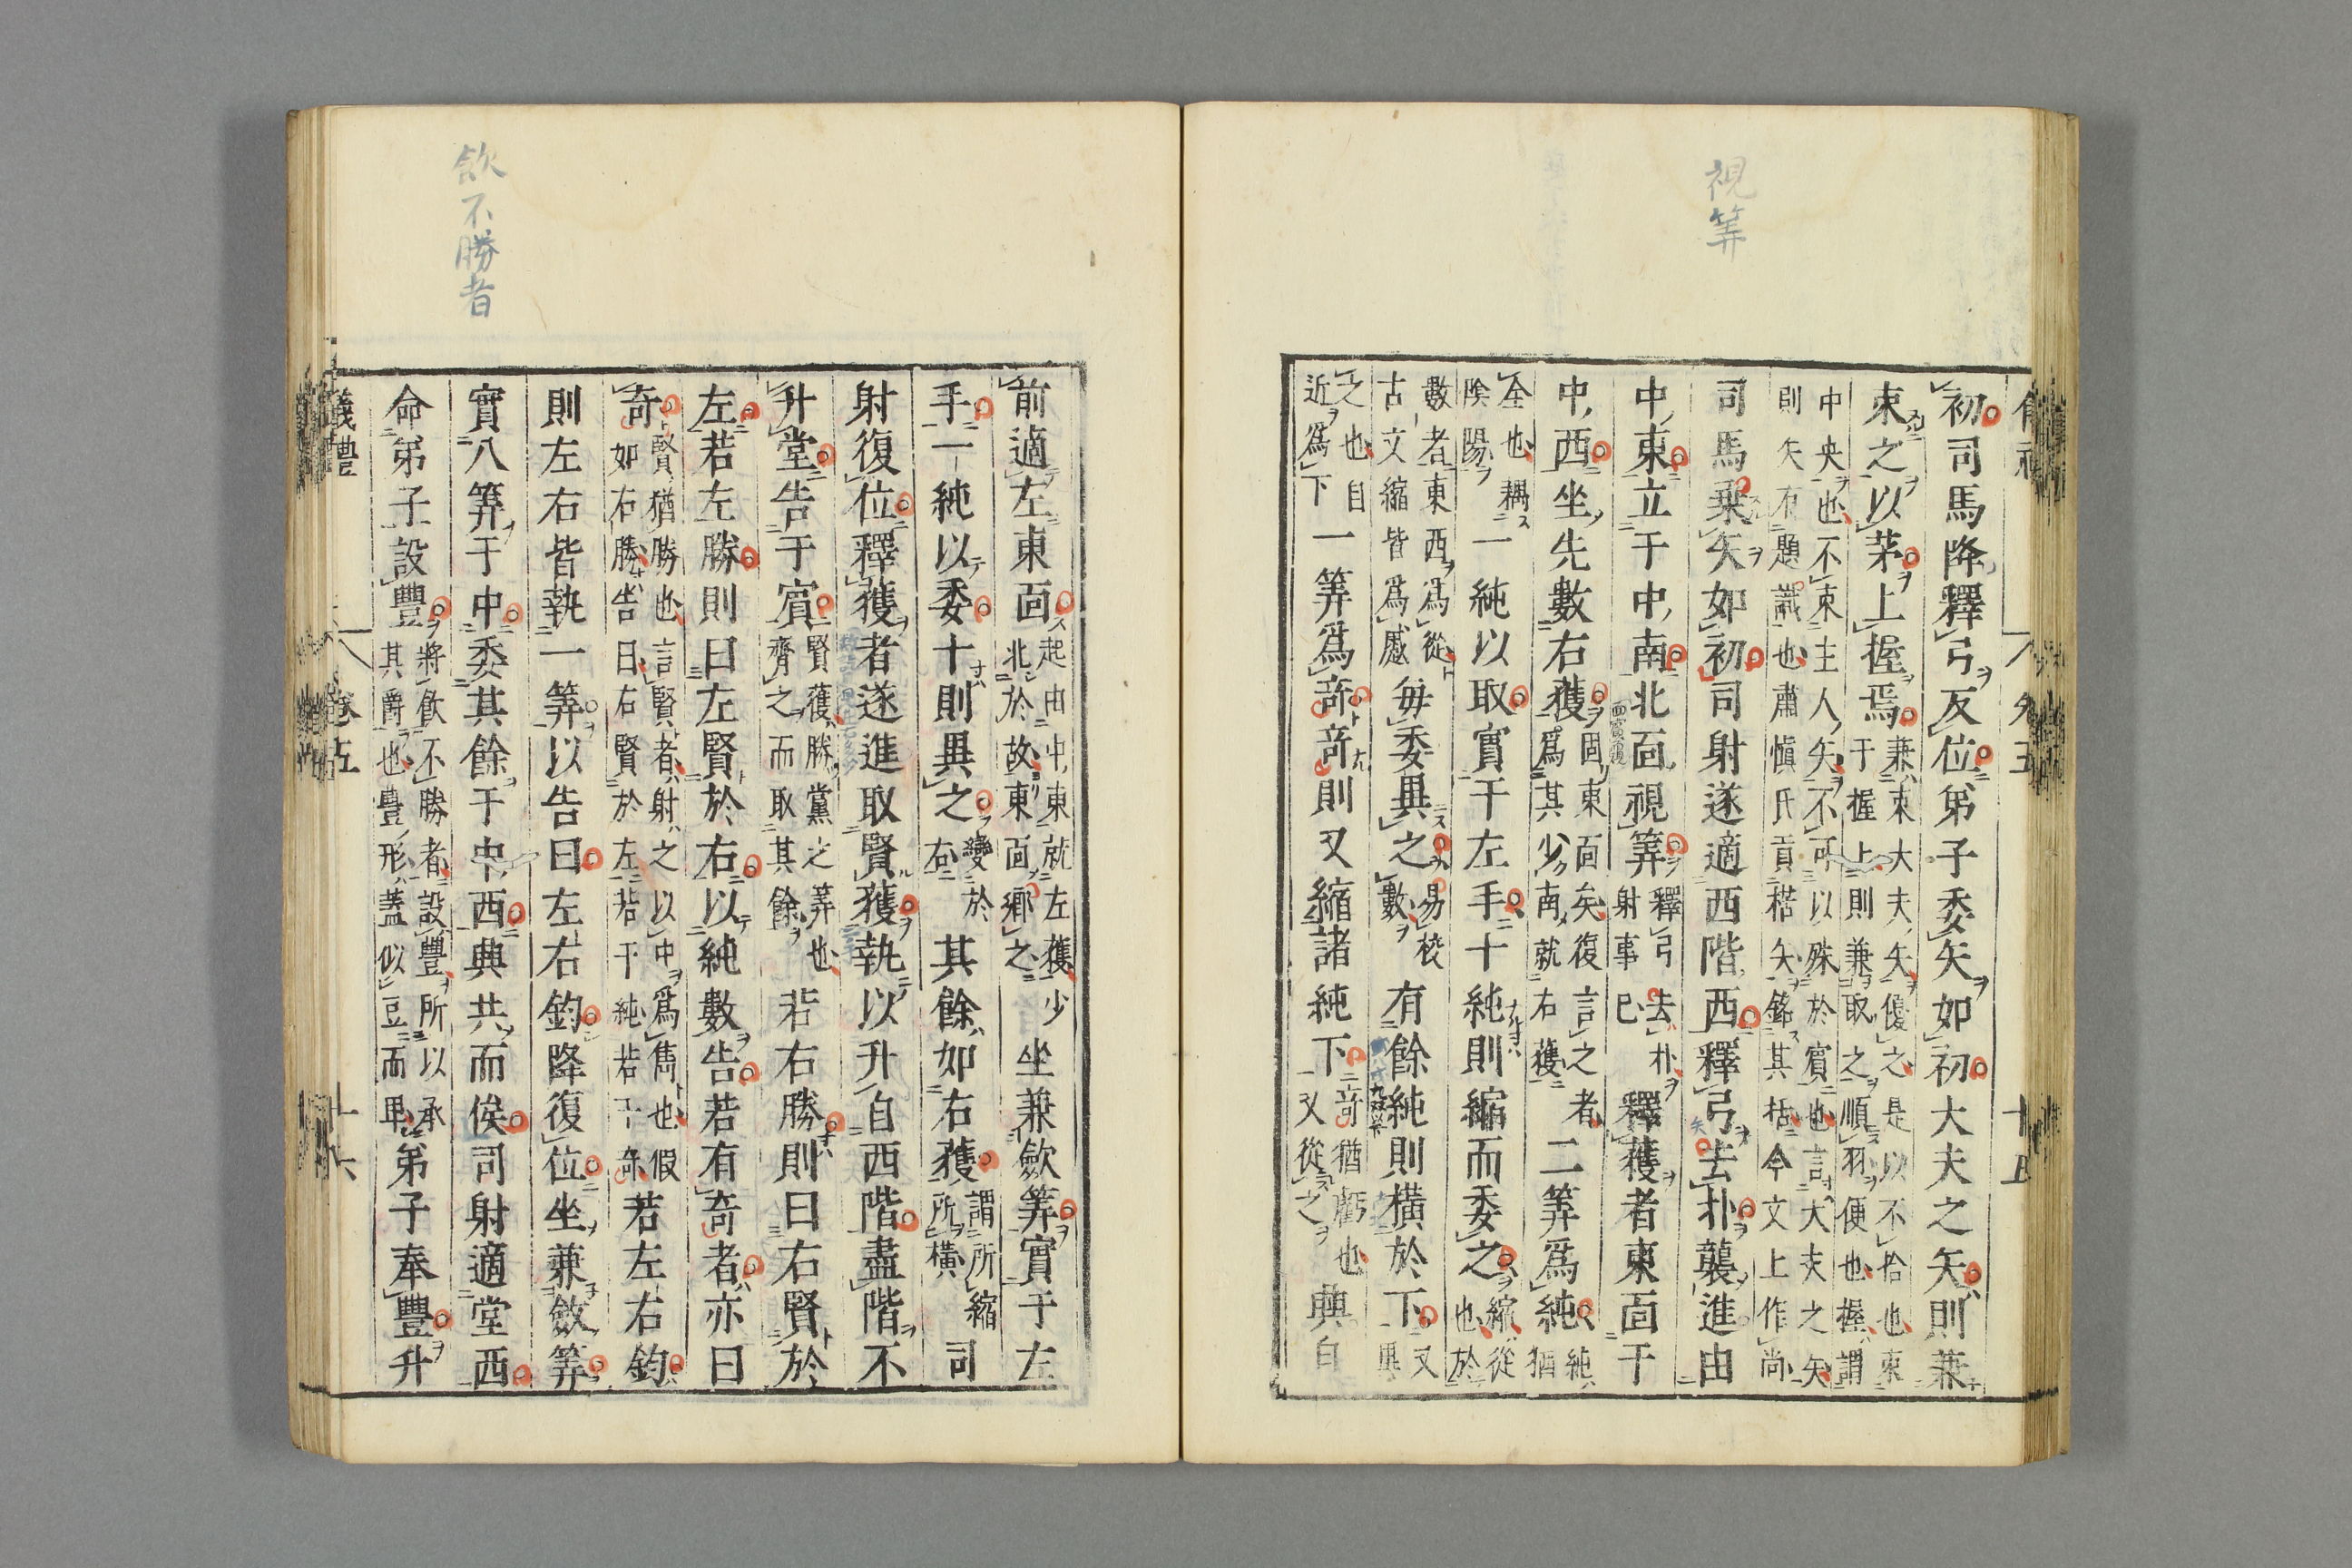 視筭
初司馬降釋弓反位弟子委矢如初大夫之矢則兼
束之以茅上握焉兼束大夫矢優之是以不拾也束
于握上則兼取之順羽便也握謂
中央也不束主人矢不可以殊於賓也言大夫之矢
則矢有題識也肅愼氏貢楛矢銘其栝今文上作尚
司馬乗矢如初司射遂適西階西釋弓去扑襲進由
中東立于中南北靣視筭釋弓去扑
射事已釋獲者東靣于
中西坐先數右獲固東靣矣復言之者
爲其少南就右獲二筭爲純純猶
全也耦
陰陽一純以取實于左手十純則縮而委之縮從
也於
數者東西爲從
古文縮皆爲蹙毎委異之易校
數有餘純則横於下又
異
之也自
近爲下一筭爲竒竒則又縮諸純下竒猶虧也
又從之興自
前適左東靣起由中東就左獲少
北於故東靣郷之坐兼歛筭實于左
手一純以委十則異之變於
右其餘如右獲謂所縮
所横司
射復位釋獲者遂進取賢獲執以升自西階盡階不
升堂告于賔賢獲勝黨之筭也
齊之而取其餘若右勝則曰右賢於
左若左勝則曰左賢於右以純數告若有竒者亦曰
竒賢猶勝也言賢者射之以中爲雋也假
如右勝告曰右賢於左若干純若干竒若左右鈞
則左右皆執一筭以告曰左右鈞降復位坐兼斂筭
實八筭于中委其餘于中西興共而俟司射適堂西
命弟子設豐將飲不勝者設豐所以承
其爵也豐形蓋似豆而卑弟子奉豐升
儀禮 卷五 十六
飲不勝者